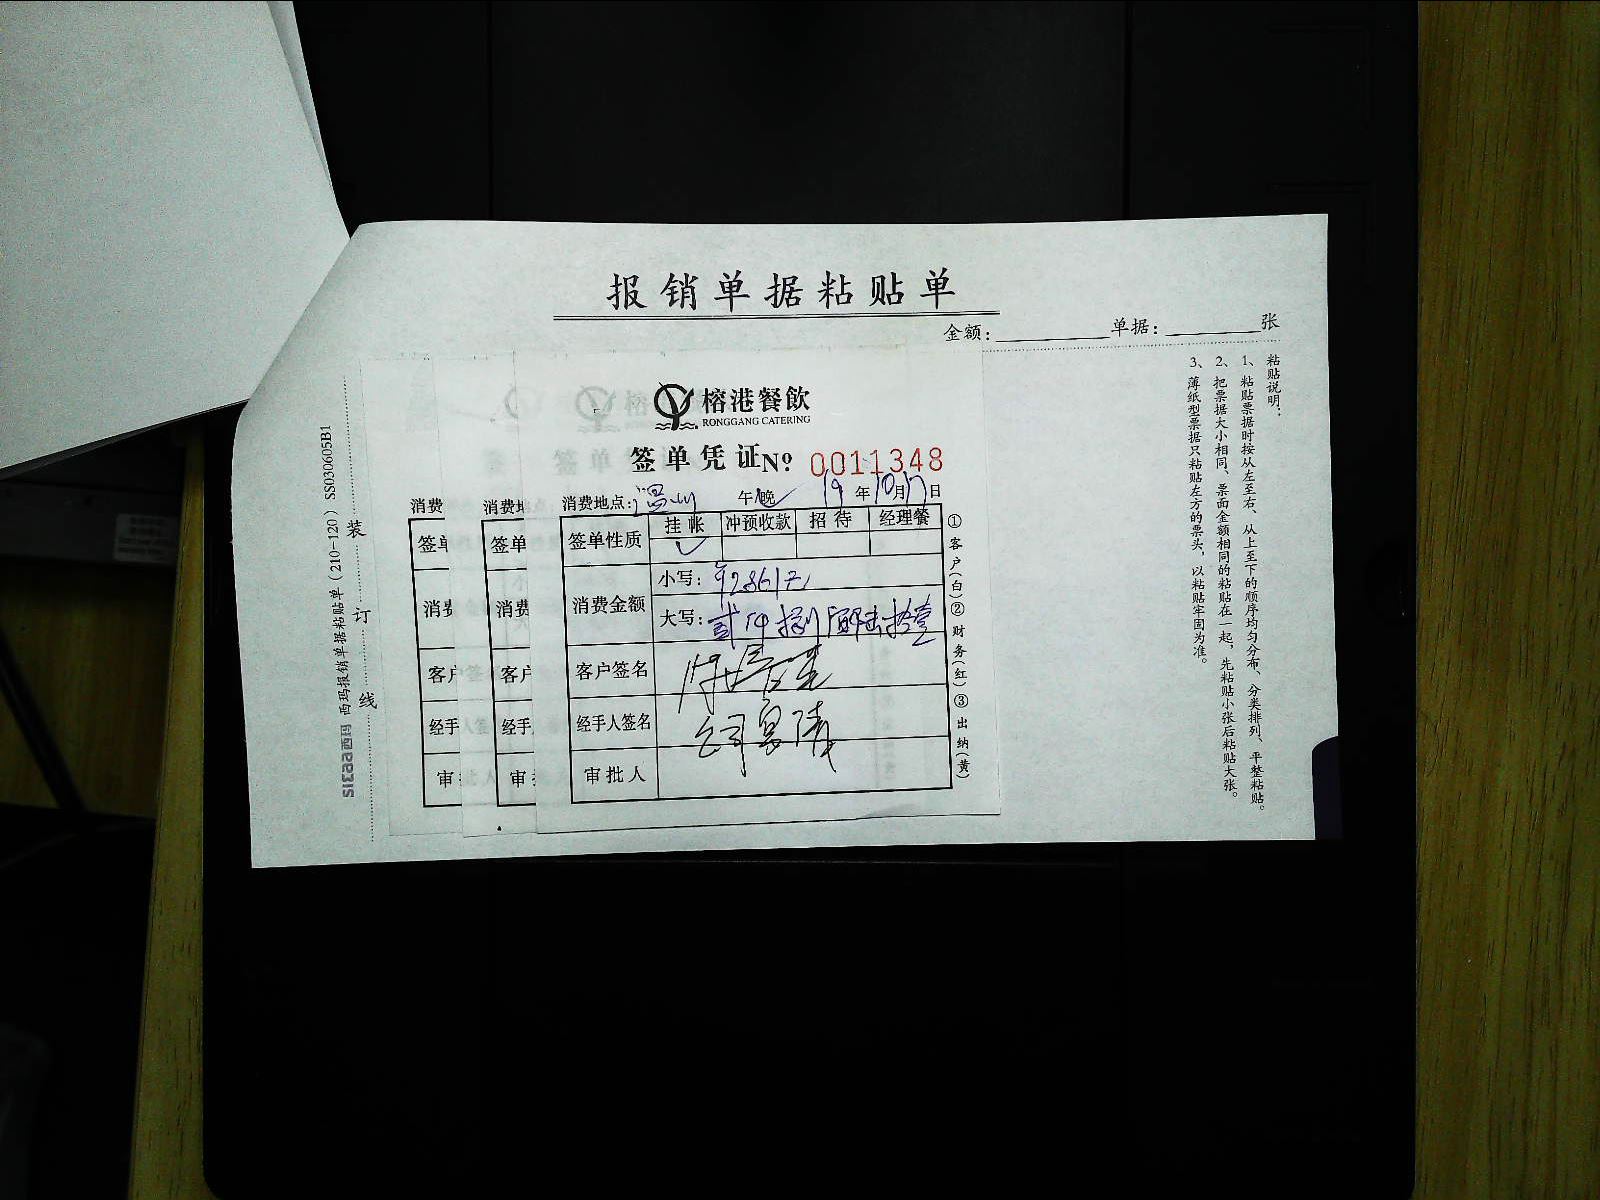 报销单据粘贴单
金额： 单据： 张
榕港餐飲
RONGGANG CATERING
签单凭证 № 0011348
消费地点：温州 午晚 19年10月17日
签单性质 挂帐 冲预收款 招待 经理餐
消费金额
小写：¥2861元
大写：贰仟捌佰陆拾壹
客户签名
经手人签名
审批人
①客户(白)②财务(红)③出纳(黄)
消费
签单
消费
客户
经手
审
消费地
签单
消费
客户
经手
审
粘贴说明：
1、粘贴票据时按从左至右、从上至下的顺序均匀分布、分类排列、平整粘贴。
2、把票据大小相同、票面金额相同的粘贴在一起，先粘贴小张后粘贴大张。
3、薄纸型票据只粘贴左方的票头，以粘贴牢固为准。
装订线
simaa西玛 西玛报销单据粘贴单（210-120）SS030605B1